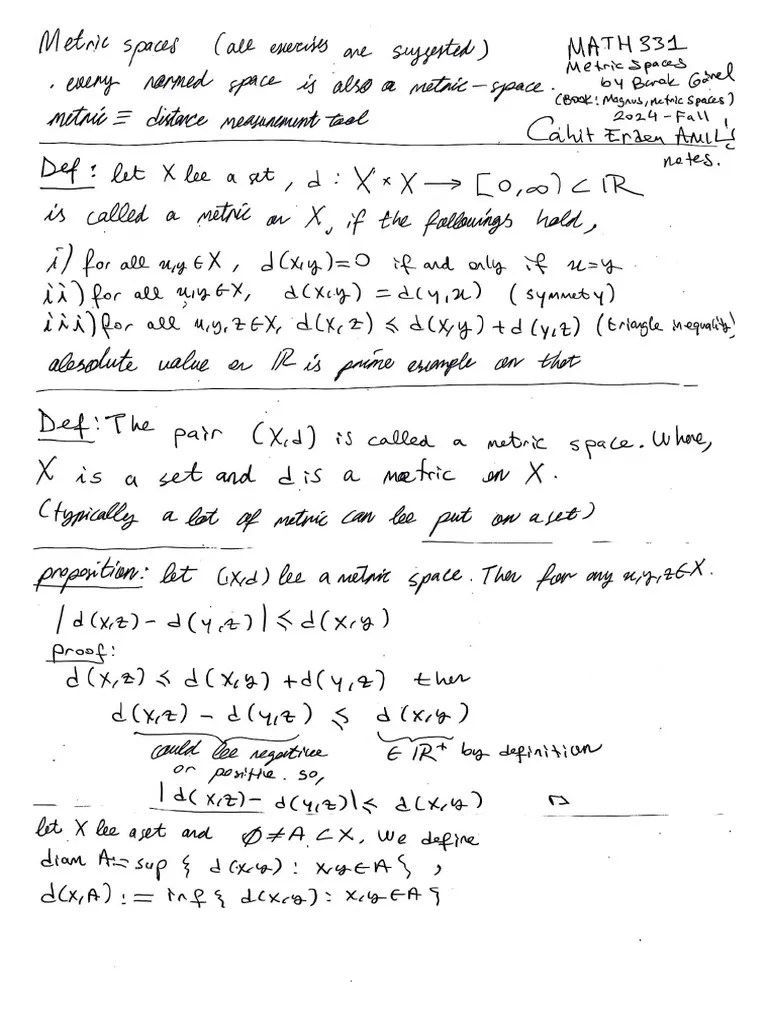 Metric spaces (all exercises are suggested)
. every normed space is also a metric-space.
metric ≡ distance measurement tool
MATH 331
Metric Spaces
by Burak Gürel
(Book: Magnus, metric spaces)
2024-Fall
Cahit Erdem ANIL's
notes.
Def: let X be a set, d: X×X → [0,∞) ⊂ ℝ
is called a metric on X, if the followings hold,
i) for all x,y ∈ X, d(x,y)=0 if and only if x=y
ii) for all x,y ∈ X, d(x,y) = d(y,x) (symmety)
iii) for all x,y,z ∈ X, d(x,z) ≤ d(x,y) + d(y,z) (triangle inequality)
absolute value on ℝ is prime example on that
Def: The pair (X,d) is called a metric space. Where,
X is a set and d is a metric on X.
(typically a lot of metric can be put on a set)
proposition: let (X,d) be a metric space. Then for any x,y,z ∈ X.
|d(x,z) - d(y,z)| ≤ d(x,y)
Proof:
d(x,z) ≤ d(x,y) + d(y,z) then
d(x,z) - d(y,z) ≤ d(x,y)
could be negative ∈ ℝ⁺ by definition
or positive. so,
|d(x,z) - d(y,z)| ≤ d(x,y)
let X be a set and ∅ ≠ A ⊂ X, We define
diam A := sup { d(x,y) : x,y ∈ A } ,
d(x,A) := inf { d(x,y) : x,y ∈ A }